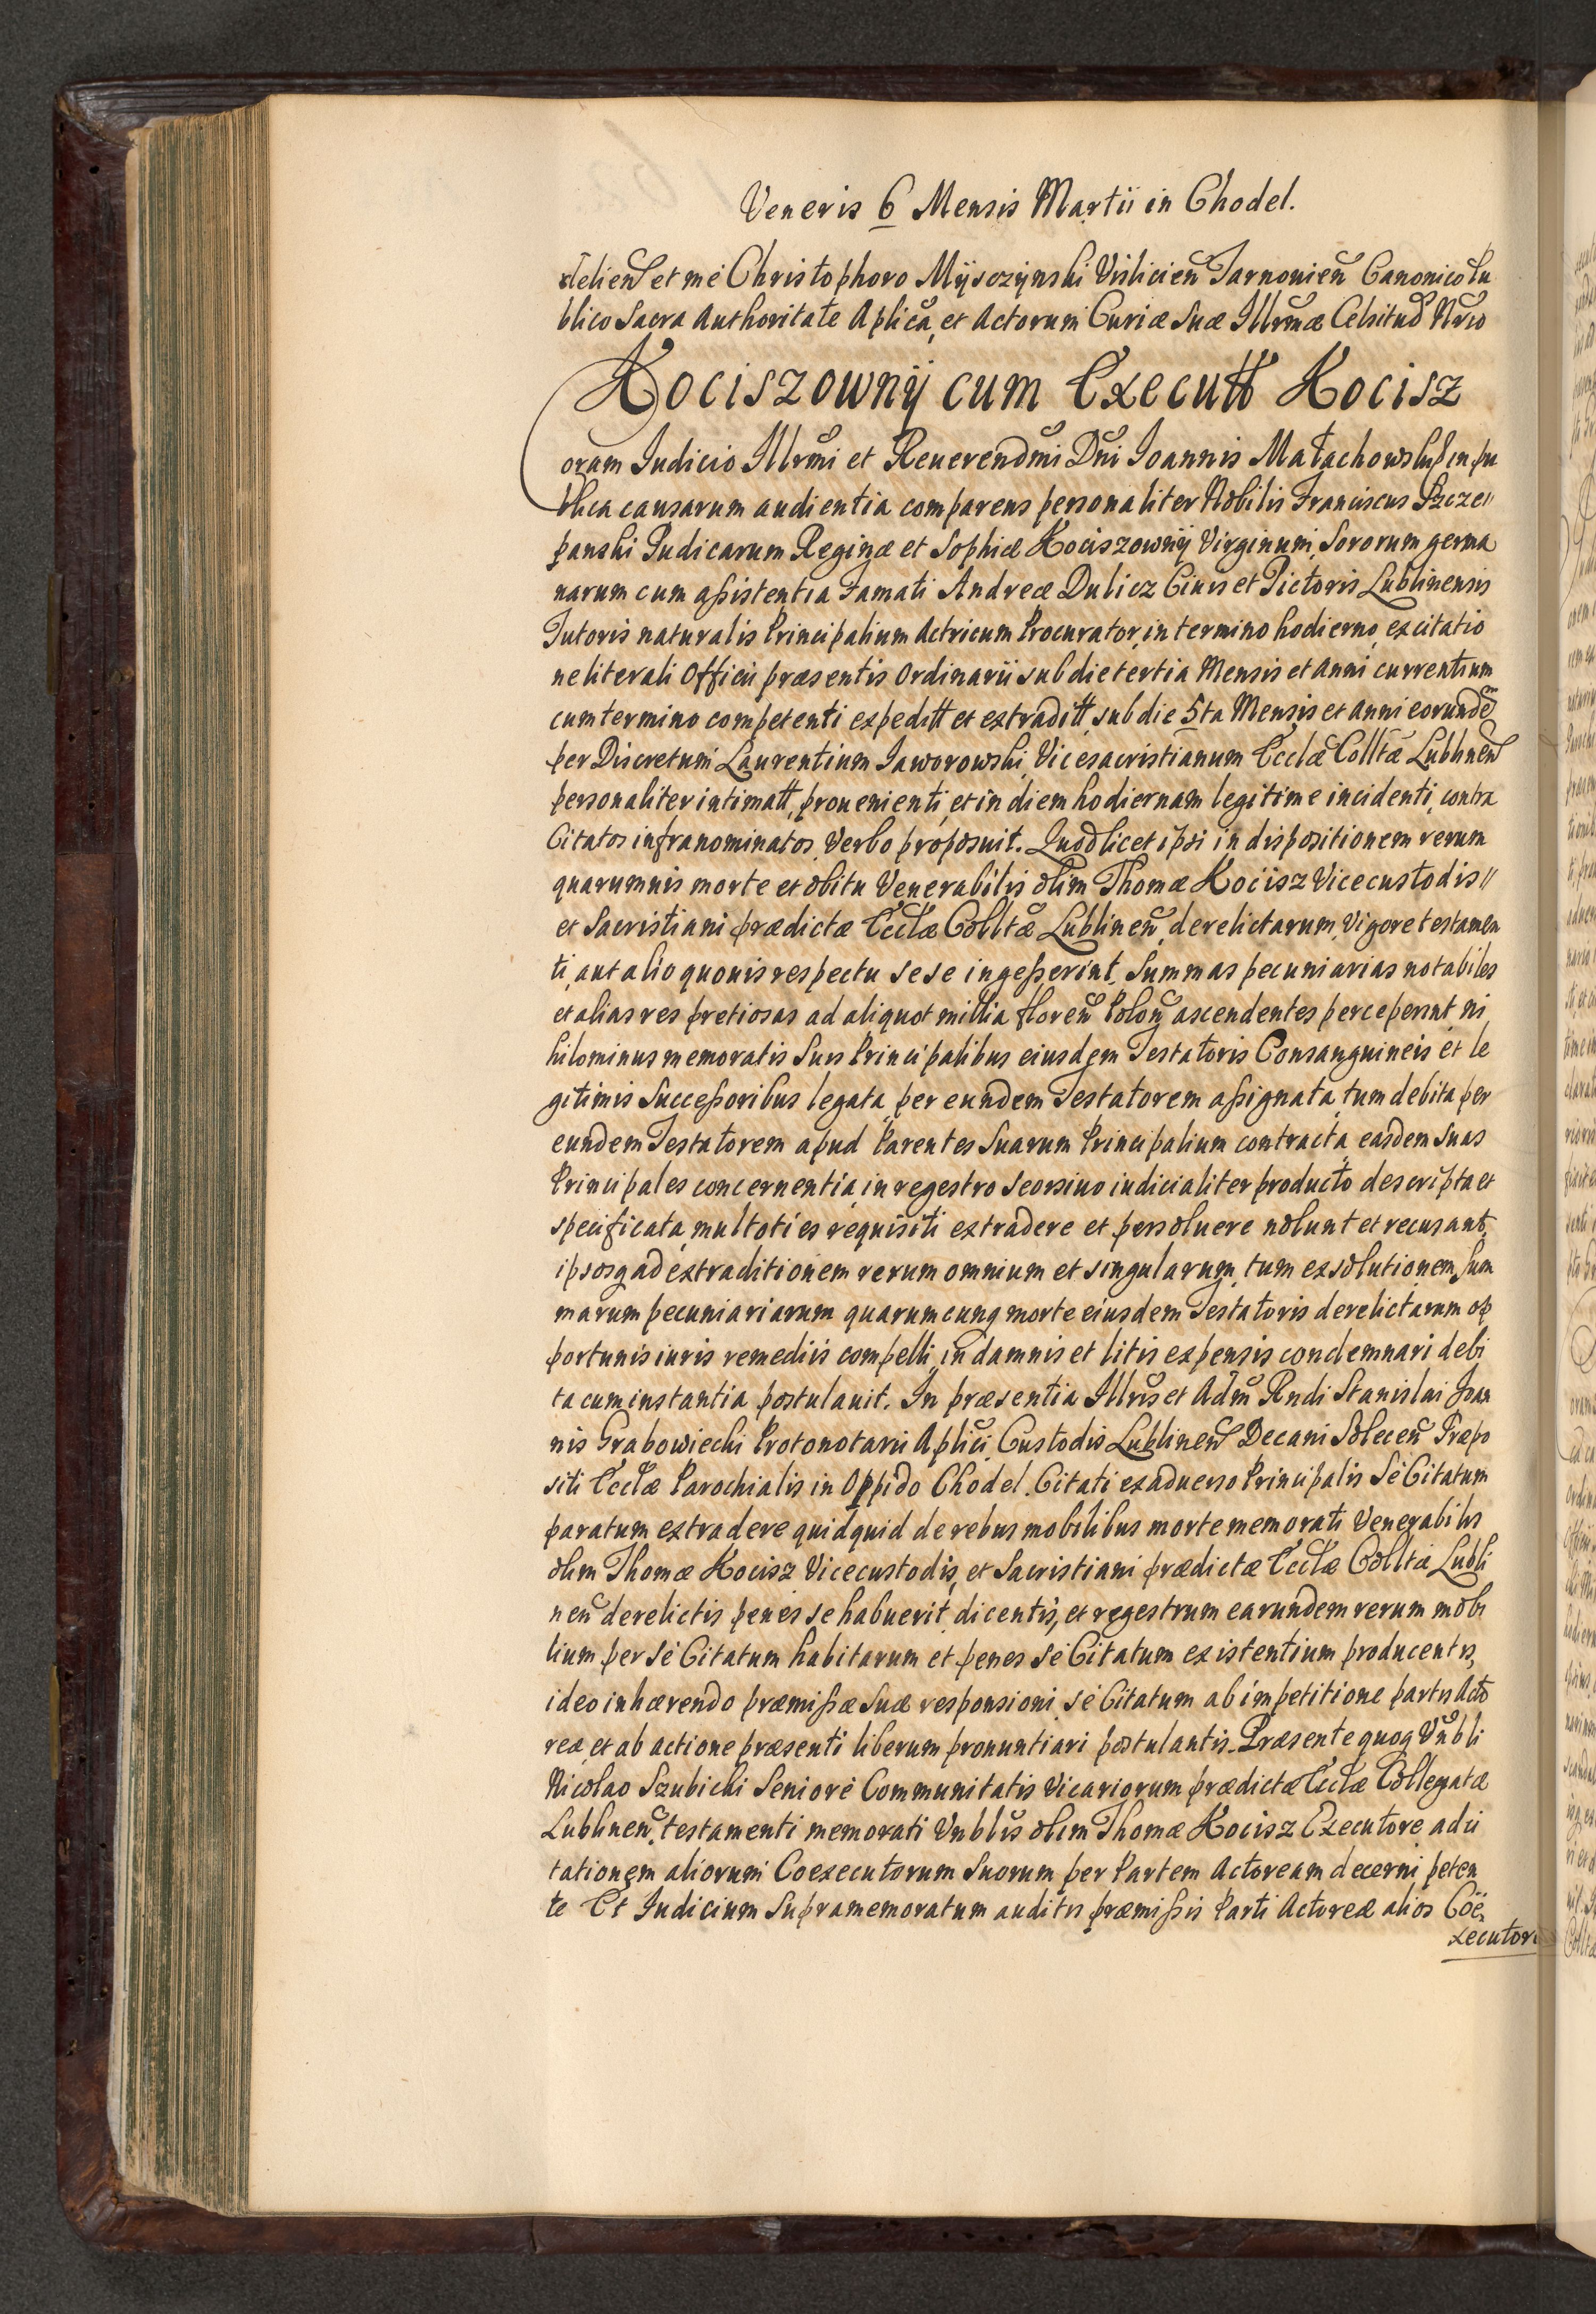 Veneris 6 Mensis Martii in Chodel.
delien̄ et me Christophoro Mÿsczÿnski Vislicien̄ Tarnouien̄ Canonico Pu
blico Sacra Authoritate Aplicā, et Actorum Curiæ Suæ Illrmæ Celsitud Nrio
Kociszownÿ cum Executtt Kocisz
oram Iudicio Illrmi et Reuerendmi Dni Ioannis Małachowski in pu
blica causarum audientia comparens personaliter Nobilis Franciscus Szcze〃
panski Pudicarum Reginæ et Sophiæ Kociszownÿ Virginum, Sororum germa
narum cum assistentia Famati Andreæ Dulicz Ciuis et Pictoris Lublinensis
Tutoris naturalis Principalium Actricum Procurator, in termino hodierno, ex citatio
ne literali Officii præsentis Ordinarii sub die tertia Mensis et Anni currentium
cum termino competenti expeditt et extraditt, sub die 5ta Mensis et Anni eorundē
per Discretum Laurentium Jaworowski, Vicesacristianum Ecclæ Colltæ Lublinen̄
personaliter intimatt, prouenienti, et in diem hodiernam legitime incidenti, contra
Citatos infranominatos, Verbo proposuit. Quod licet ipsi in dispositionem rerum
quarumuis morte et obitu Venerabilis olim Thomæ Kocisz Vicecustodis〃
et Sacristiani prædictæ Ecclæ Colltæ Lublinen̄, derelictarum, Vigore testamen
ti, aut alio quouis respectu sese ingesserint, Summas pecuniarias notabiles
et alias res pretiosas ad aliquot millia floren̄ Polon̄ ascendentes perceperint, ni
hilominus memoratis Suis Principalibus eiusdem Testatoris Consanguineis et le
gitimis Successoribus legata, per eundem Testatorem assignata, tum debita per
eundem Testatorem apud Parentes Suarum Principalium contracta, easdem Suas
Principales concernentia, in regestro seorsiuo iudicialiter producto descripta et
specificata, multoties requisiti extradere et persoluere nolunt et recusant,
ipsosq ad extraditionem rerum omnium et singularum, tum exsolutionem, Sum
marum pecuniariarum quarumcunq morte eiusdem Testatoris derelictarum op
portunis iuris remediis compelli, in damnis et litis expensis condemnari debi
ta cum instantia postulauit. In præsentia Illris et Adm̄ Rndi Stanislai Ioan
nis Grabowiecki Protonotarii Aplici, Custodis Lublinen̄ Decani Solecen̄ Præpo
siti Ecclæ Parochialis in Oppido Chodel. Citati ex aduerso Principalis Se Citatum
paratum extradere quidquid de rebus mobilibus morte memorati Venerabilis
olim Thomæ Kocisz Vicecustodis, et Sacristiani prædictæ Ecclæ Colltæ Lubli
nen̄ derelictis penes se habuerit, dicentis, et regestrum earundem rerum mobi
lium per se Citatum habitarum et penes se Citatum existentium producentis,
ideo inhærendo præmissæ Suæ responsioni, se Citatum ab impetitione partis Acto
reæ, et ab actione præsenti liberum pronuntiari postulantis. Præsente quoq Vnbli
Nicolao Szubicki Seniore Communitatis Vicariorum prædictæ Ecclæ Collegiatæ
Lublinen̄, testamenti memorati Vnblis olim Thomæ Kocisz Executore ad ci
tationem aliorum Coexecutorum Suorum per Partem Actoream decerni peten
te Et Iudicium Supramemoratum auditis præmissis Parti Actoreæ alios Coë
xecutor